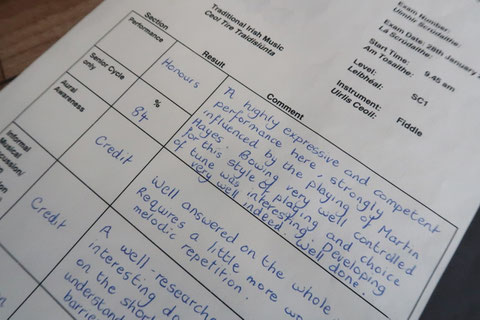 Traditional Irish Music
Ceol Tíre Traidisiúnta
Exam Number:
Uimhir Scrúdaithe:
Exam Date: 28th January
Lá Scrúdaithe:
Start Time: 9.45 am
Am Tosaithe:
Level: SC1
Leibhéal:
Instrument: Fiddle
Uirlis Ceoil:
Section
Result
Comment
Performance
Honours
A highly expressive and competent
performance here, strongly
influenced by the playing of Martin
Hayes. Bowing very well controlled
for this style of playing and choice
of tune was interesting. Developing
very well indeed. Well done.
Senior Cycle
only
%
84
Aural
Awareness
Credit
Well answered on the whole.
Requires a little more wo
melodic repetition.
Informal
Musical
Credit
A well-researche
interesting do
on the short
understand
barrie